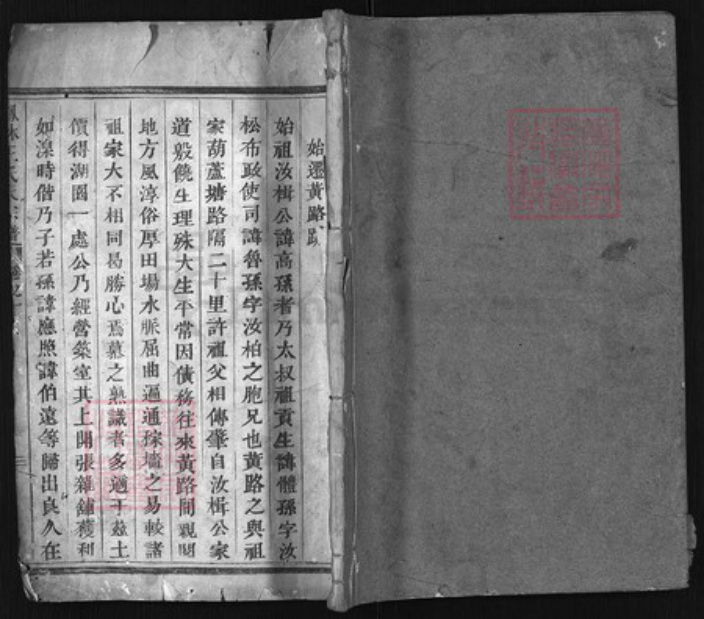 始遷黄路跋
始祖汝楫公諱高孫者乃太叔祖貢生諱體孫字汝
松布政使司諱魯孫字汝柏之胞兄也黄路之與祖
家葫蘆塘路隔二十里許祖父相傳肇自汝楫公家
道殷饒生理殊大生平常因債務往來黄路間親閱
地方風淳俗厚田場水脈屈曲遍通稼墻之易較諸
祖家大不相同曷勝心焉慕之熟識者多遒于茲土
價得湖園一處公乃經營築室其上開張雜鋪獲利
如湶時偕乃子若孫諱應照諱伯遠等歸出良久在